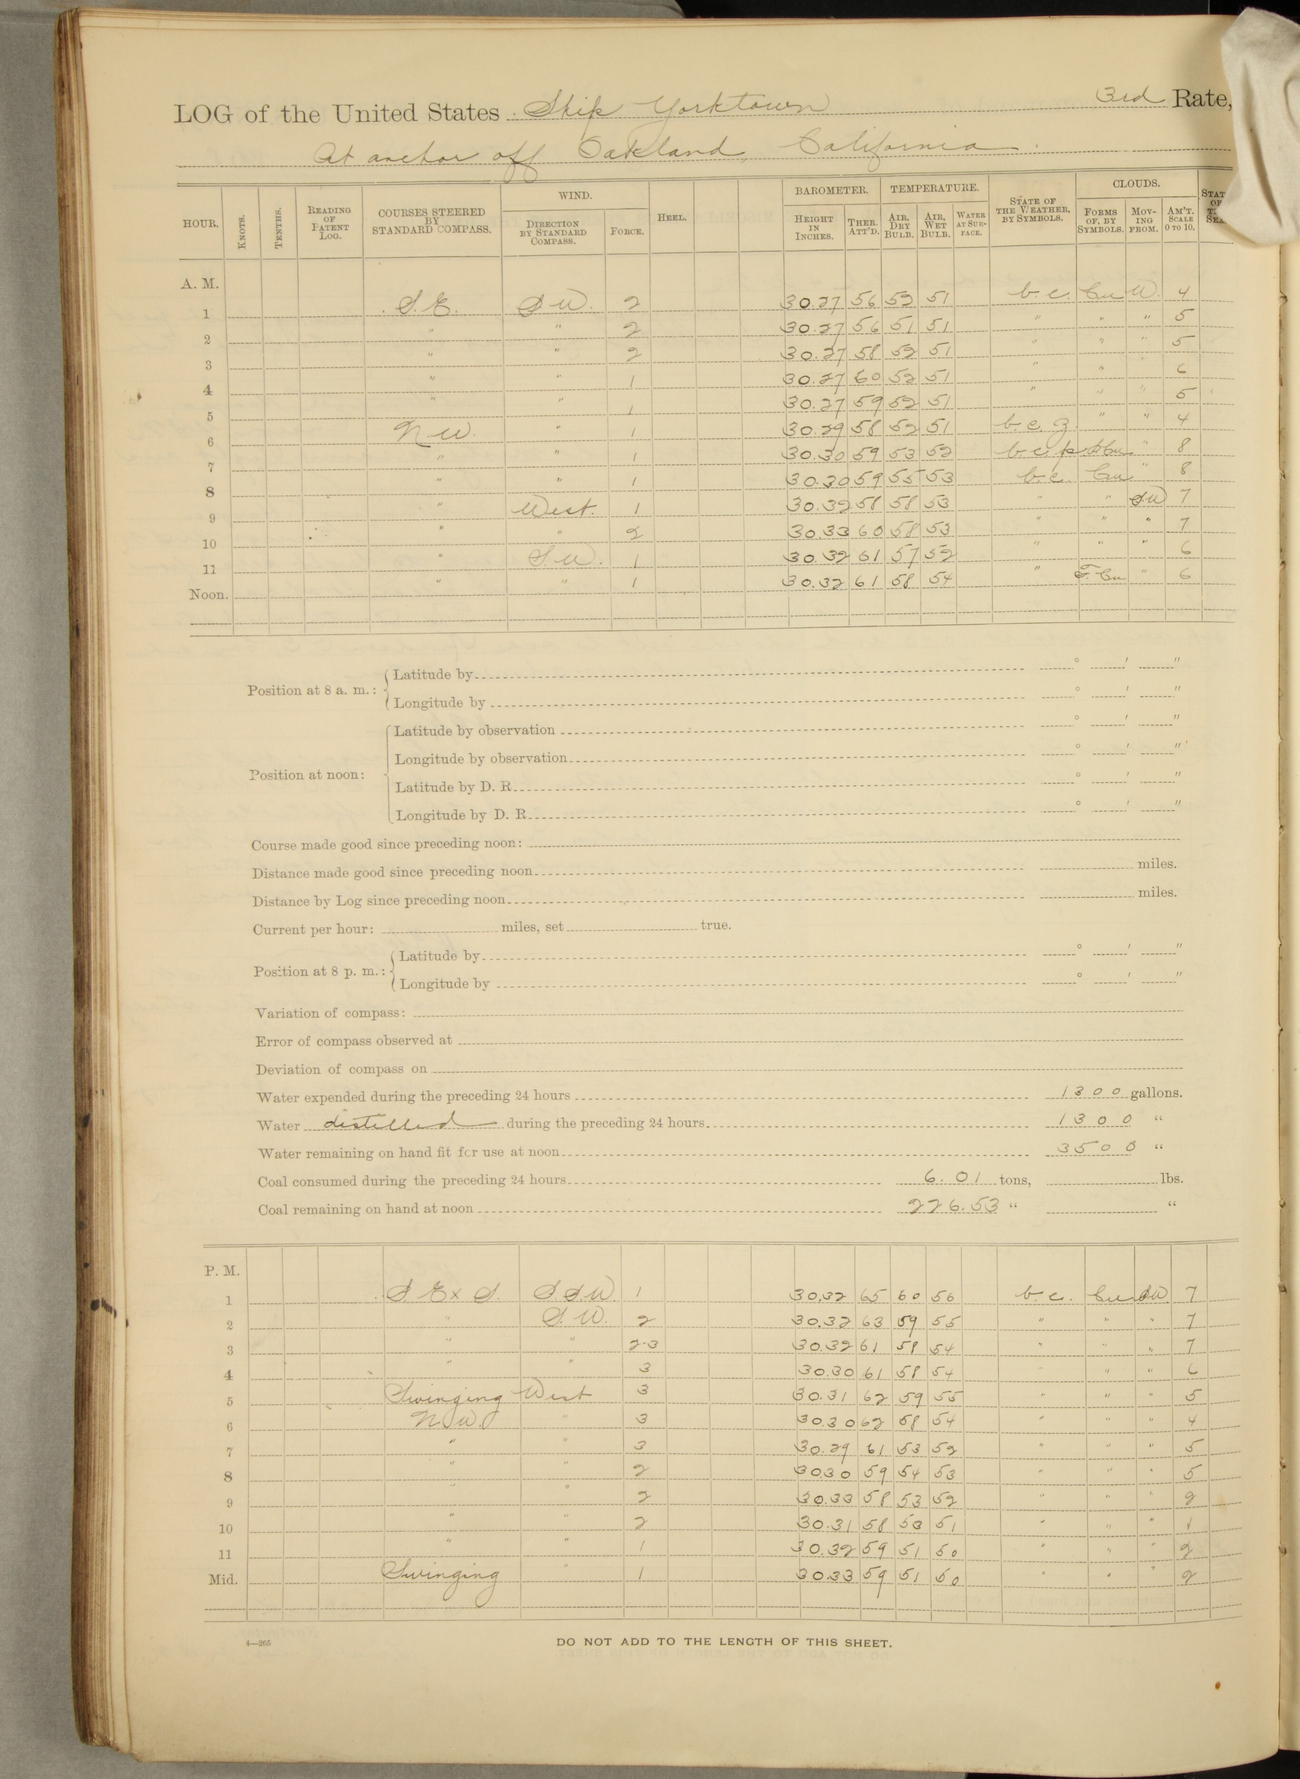 LOG of the United States Ship Yorktown 3rd Rate,
At anchor off Oakland, California.
HOUR. KNOTS. TENTHS. READING OF PATENT LOG. COURSES STEERED BY STANDARD COMPASS. WIND. DIRECTION BY STANDARD COMPASS. FORCE. HEEL. BAROMETER. HEIGHT IN INCHES. THER. ATT'D. TEMPERATURE. AIR, DRY BULB. AIR, WET BULB. WATER AT SURFACE. STATE OF THE WEATHER, BY SYMBOLS. CLOUDS. FORMS OF, BY SYMBOLS. MOVING FROM. AM'T. SCALE 0 TO 10. STAT OF
A. M.
1 S.E. SW. 2 30.27 56 52 51 b.c. Cu W. 4
2 " " 2 30.27 56 51 51 " " " 5
3 " " 2 30.27 58 52 51 " " " 5
4 " " 1 30.27 60 52 51 " " 6
5 " " 1 30.27 59 52 51 " " " 5
6 NW. " 1 30.29 58 52 51 b.c.z. " " 4
7 " " 1 30.30 59 53 52 b.c.p. " 8
8 " " 1 30.30 59 55 53 b.c. Cu " 8
9 " West. 1 30.32 58 58 53 " " SW 7
10 " " 2 30.33 60 58 53 " " " 7
11 " SW. 1 30.32 61 57 52 " " " 6
Noon. " " 1 30.32 61 58 54 " Cu " 6
Position at 8 a. m.: Latitude by ° ' "
Longitude by ° ' "
Position at noon: Latitude by observation ° ' "
Longitude by observation ° ' "
Latitude by D. R. ° ' "
Longitude by D. R. ° ' "
Course made good since preceding noon:
Distance made good since preceding noon miles.
Distance by Log since preceding noon miles.
Current per hour: miles, set true.
Position at 8 p. m.: Latitude by ° ' "
Longitude by ° ' "
Variation of compass:
Error of compass observed at
Deviation of compass on
Water expended during the preceding 24 hours 1300 gallons.
Water distilled during the preceding 24 hours 1300 "
Water remaining on hand fit for use at noon 3500 "
Coal consumed during the preceding 24 hours 6.01 tons, lbs.
Coal remaining on hand at noon 226.53 " "
P. M.
1 S E x S. S S W. 1 30.32 65 60 56 b.c. Cu SW 7
2 " S.W. 2 30.32 63 59 55 " " " 7
3 " " 2-3 30.32 61 58 54 " " " 7
4 " " 3 30.30 61 58 54 " " " 6
5 Swinging West 3 30.31 62 59 55 " " " 5
6 N.W. " 3 30.30 62 58 54 " " " 4
7 " " 3 30.29 61 53 52 " " " 5
8 " " 2 30.30 59 54 53 " " " 5
9 " " 2 30.33 58 53 52 " " " 2
10 " " 2 30.31 58 53 51 " " " 1
11 " " 1 30.32 59 51 50 " " " 2
Mid. Swinging " 1 30.33 59 51 50 " " " 2
4—265
DO NOT ADD TO THE LENGTH OF THIS SHEET.